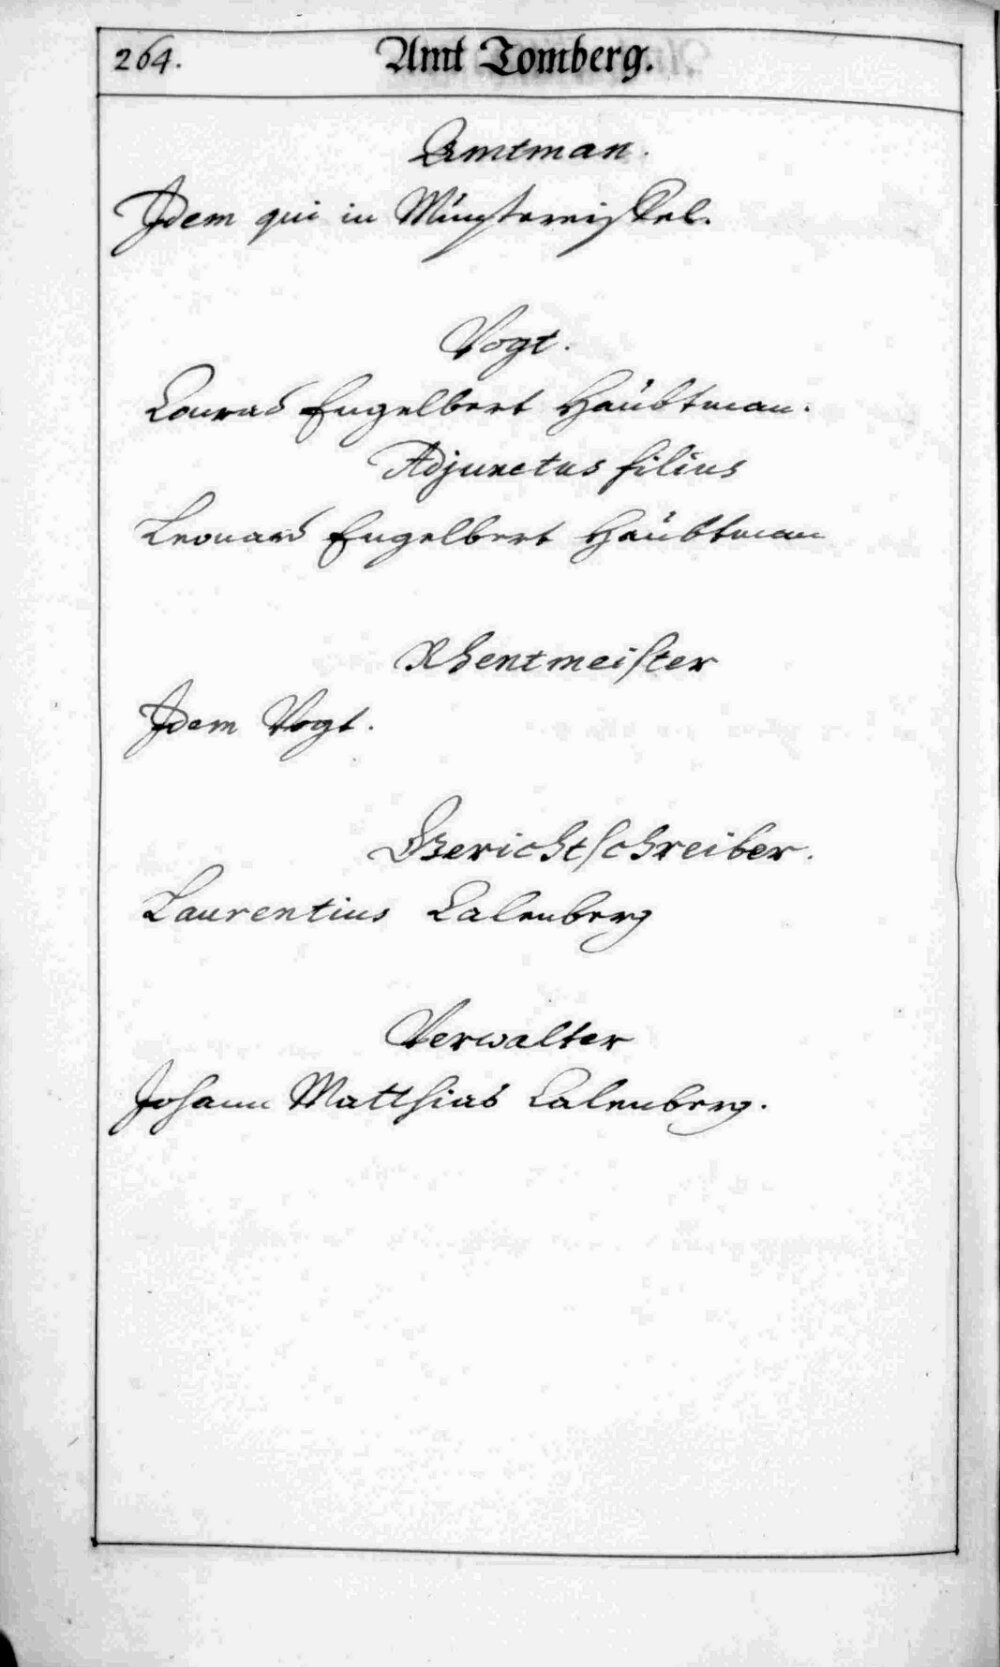 264.
Amt Tomberg.
Amtman.
Idem qui in Münstereiffel.
Vogt.
Conrad Engelbert Häubtman.
Adjunctus filius
Leonard Engelbert Häubtman
Rhentmeister
Idem Vogt.
Gerichtschreiber.
Laurentius Calenberg
Verwalter
Johann Matthias Calenberg.